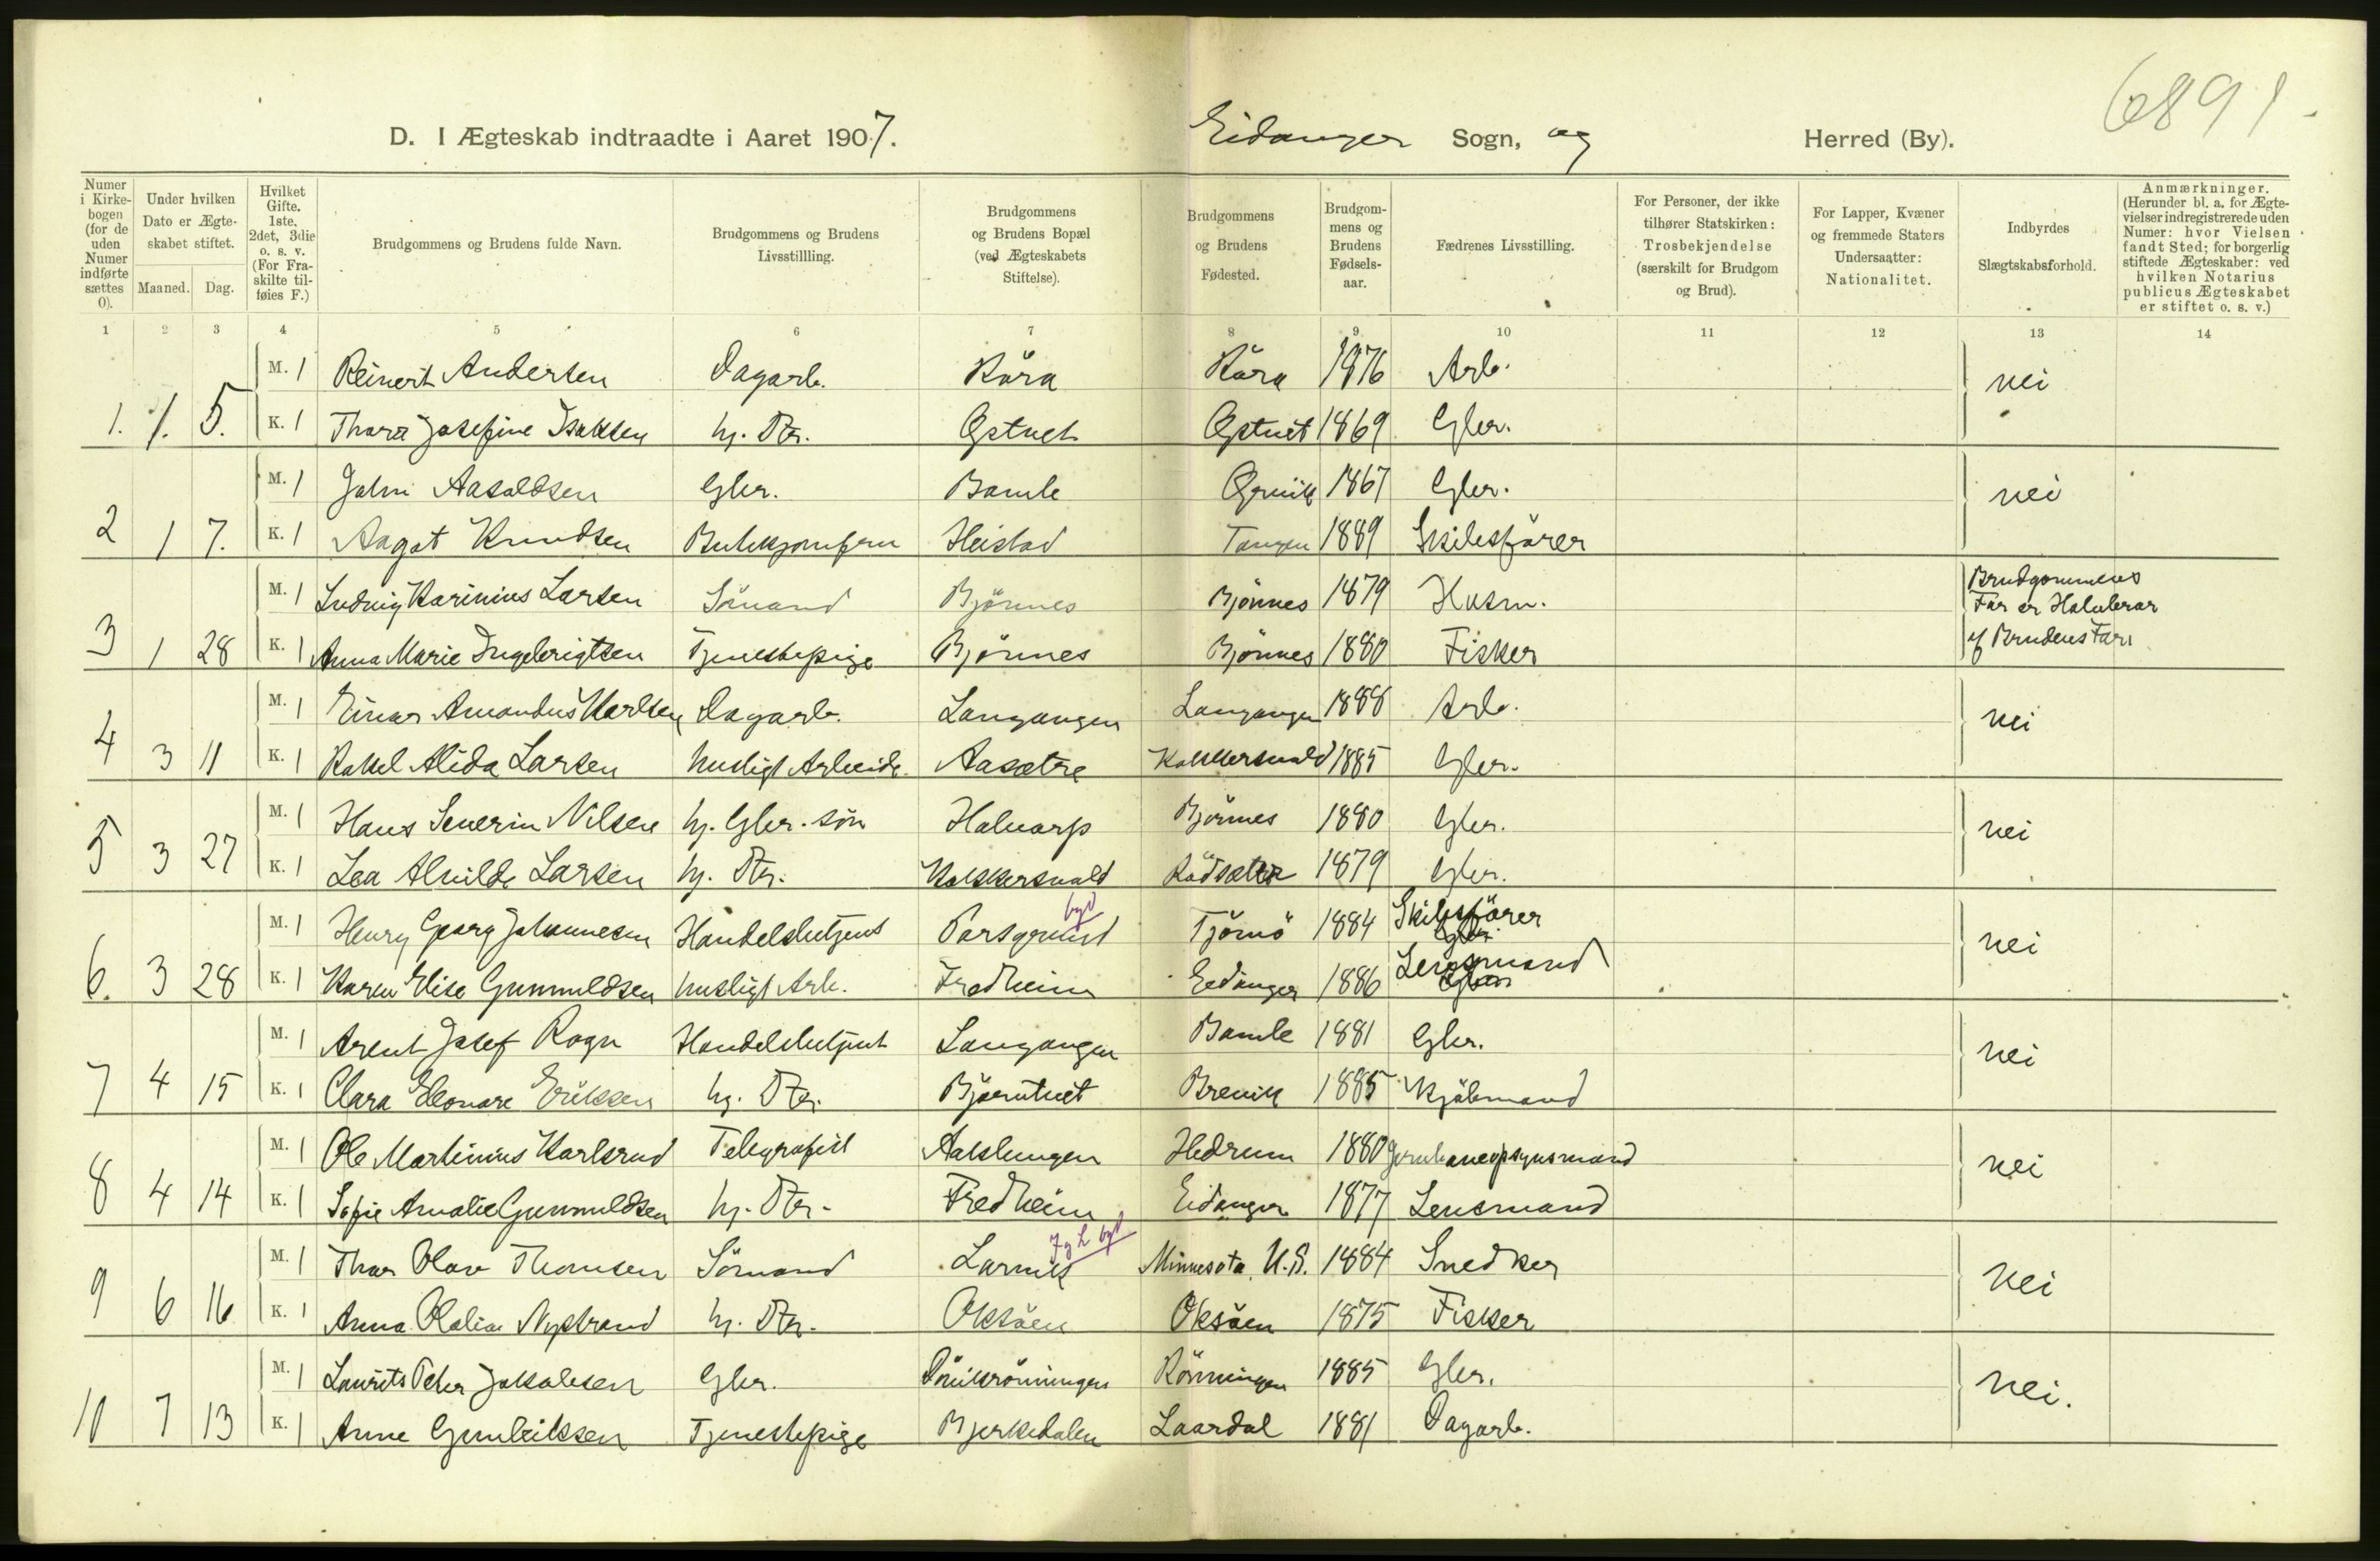 6891-
D. I Ægteskab indtraadte i Aaret 1907. Eidanger Sogn, og Herred (By).
Numer i Kirkebogen (for de uden Numer indførte sættes 0). Under hvilken Dato er Ægteskabet stiftet. Maaned. Dag. Hvilket Gifte. 1ste, 2det, 3die o. s. v. (For Fraskilte tilføies F.) Brudgommens og Brudens fulde Navn. Brudgommens og Brudens Livsstillling. Brudgommens og Brudens Bopæl (ved Ægteskabets Stiftelse). Brudgommens og Brudens Fødested. Brudgommens og Brudens Fødselsaar. Fædrenes Livsstilling. For Personer, der ikke tilhører Statskirken: Trosbekjendelse (særskilt for Brudgom og Brud). For Lapper, Kvæner og fremmede Staters Undersaatter: Nationalitet. Indbyrdes Slægtskabsforhold. Anmærkninger. (Herunder bl. a. for Ægtevielser indregistrerede uden Numer: hvor Vielsen fandt Sted; for borgerlig stiftede Ægteskaber: ved hvilken Notarius publicus Ægteskabet er stiftet o. s. v.)
1 2 3 4 5 6 7 8 9 10 11 12 13 14
M. 1 Reinert Andersen Dagarb. Kåra Kåra 1876 Arb. nei
1. 1. 5. K. 1 Thora Josefine Isaksen hj. Dtr. Østvet Østvet 1869 Gbr.
M. 1 John Aasoldsen Gbr. Bamle 1867 Gbr. nei
2 1 7. K. 1 Aagot Knudsen Butikjomfru Heistad Tangen 1889 Skibsfører
M. 1 Ludvig Karinius Larsen Sömand Björnes Björnes 1879 Husm. Brudgommens Far er Halvbror
3 1 28 K. 1 Anna Marie Ingebrigtsen Tjenestepige Björnes Björnes 1880 Fisker af Brudens Far
M. 1 Einar Amandus Karlsen Dagarb. Langangen Langangen 1888 Arb. nei
4 3 11 K. 1 Rakel Alida Larsen husligt Arbeide Aasætre Kokkersvold 1885 Gbr.
M. 1 Hans Severin Nilsen hj. Gbr. sön Halvarp Björnes 1880 Gbr. nei
5 3 27 K. 1 Lea Alvilde Larsen hj. Dtr. Kokkersvold Rödsæter 1879 Gbr.
M. 1 Henry Georg Johannesen Handelsbetjent Porsgrund byd Tjömö 1884 Skibsförer nei
6. 3 28 K. 1 Karen Elise Gunnuldsen husligt Arb. Fredheim Eidanger 1886 Lensmand
M. 1 Arent Josef Rogn Handelsbetjent Langangen Bamle 1881 Gbr. nei
7 4 15 K. 1 Clara Eleonore Eriksen hj. Dtr. Bjørntvet Brevik 1885 Kjöbmand
M. 1 Ole Martinius Karlsrud Telegrafist Aaklungen Hedrum 1880 Jernbaneopsynsmand nei
8 4 14 K. 1 Sofie Amalie Gunnuldsen hj. Dtr. Fredheim Eidanger 1877 Lensmand
M. 1 Thor Olav Thomsen Sömand Larvik J & L byd Minnesota. U.S. 1884 Snedker nei
9 6 16 K. 1 Anna Olalia Nystrand hj. Dtr. Oksöen Oksöen 1875 Fisker
M. 1 Laurits Peter Jakobsen Gbr. Rönningen 1885 Gbr. nei.
10 7 13 K. 1 Anne Gunleiksen Tjenestepige Bjerkedalen Laardal 1881 Dagarb.